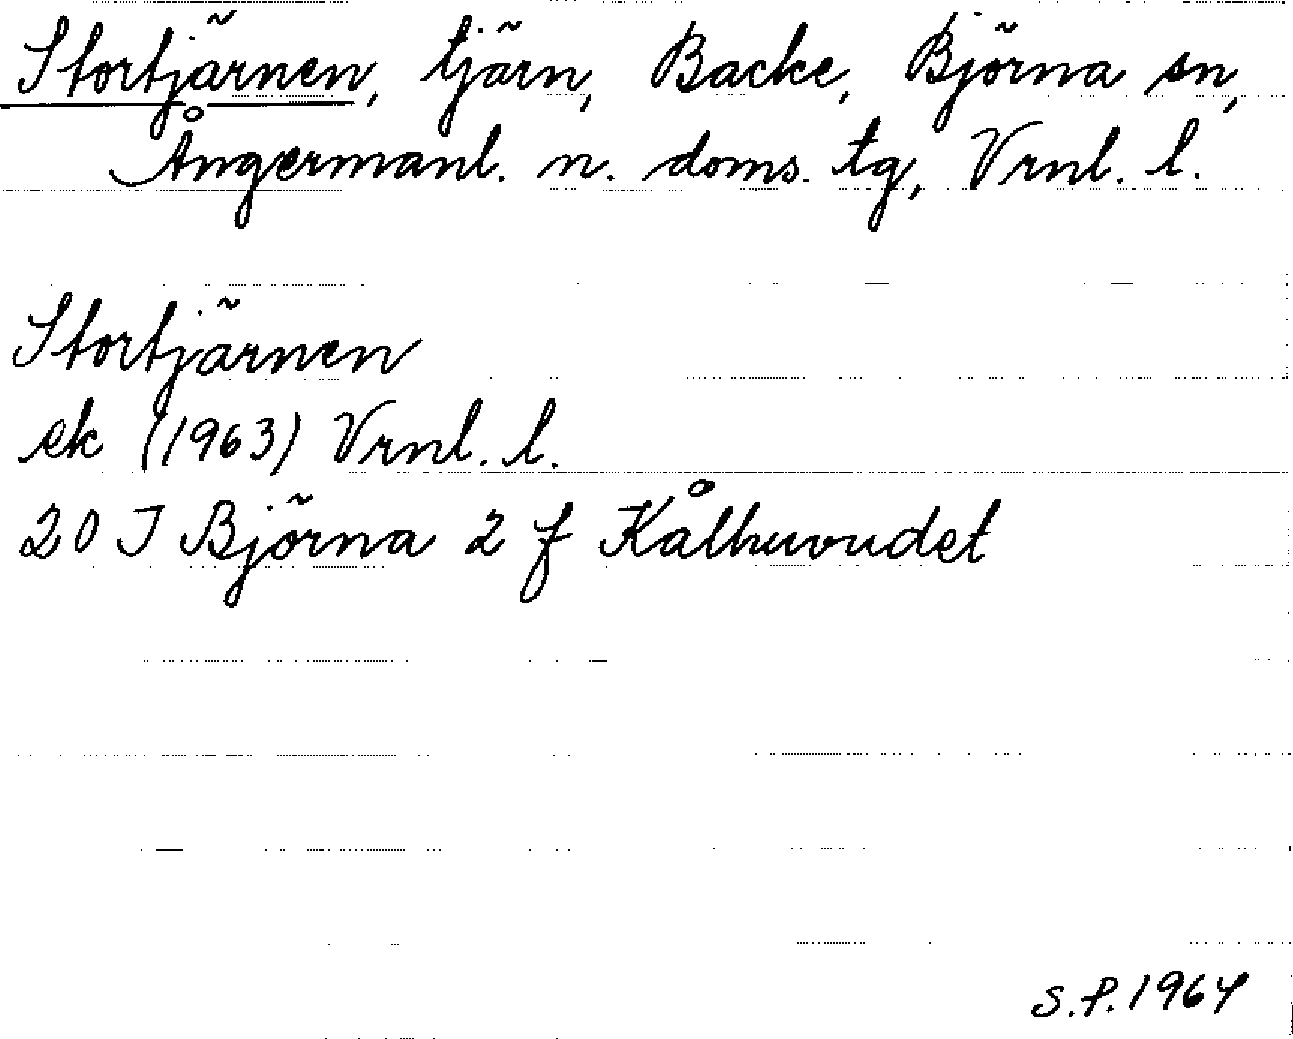 Stortjärnen, tjärn, Backe, Björna sn,
Ångermanl. n. doms. tg, Vrnl. l.
Stortjärnen
ek (1963) Vrnl. l.
20 I Björna 2 f Kålhuvudet
S.f. 1964